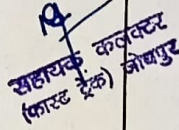 सहायक कलक्टर
(फास्ट ट्रैक) जोधपुर